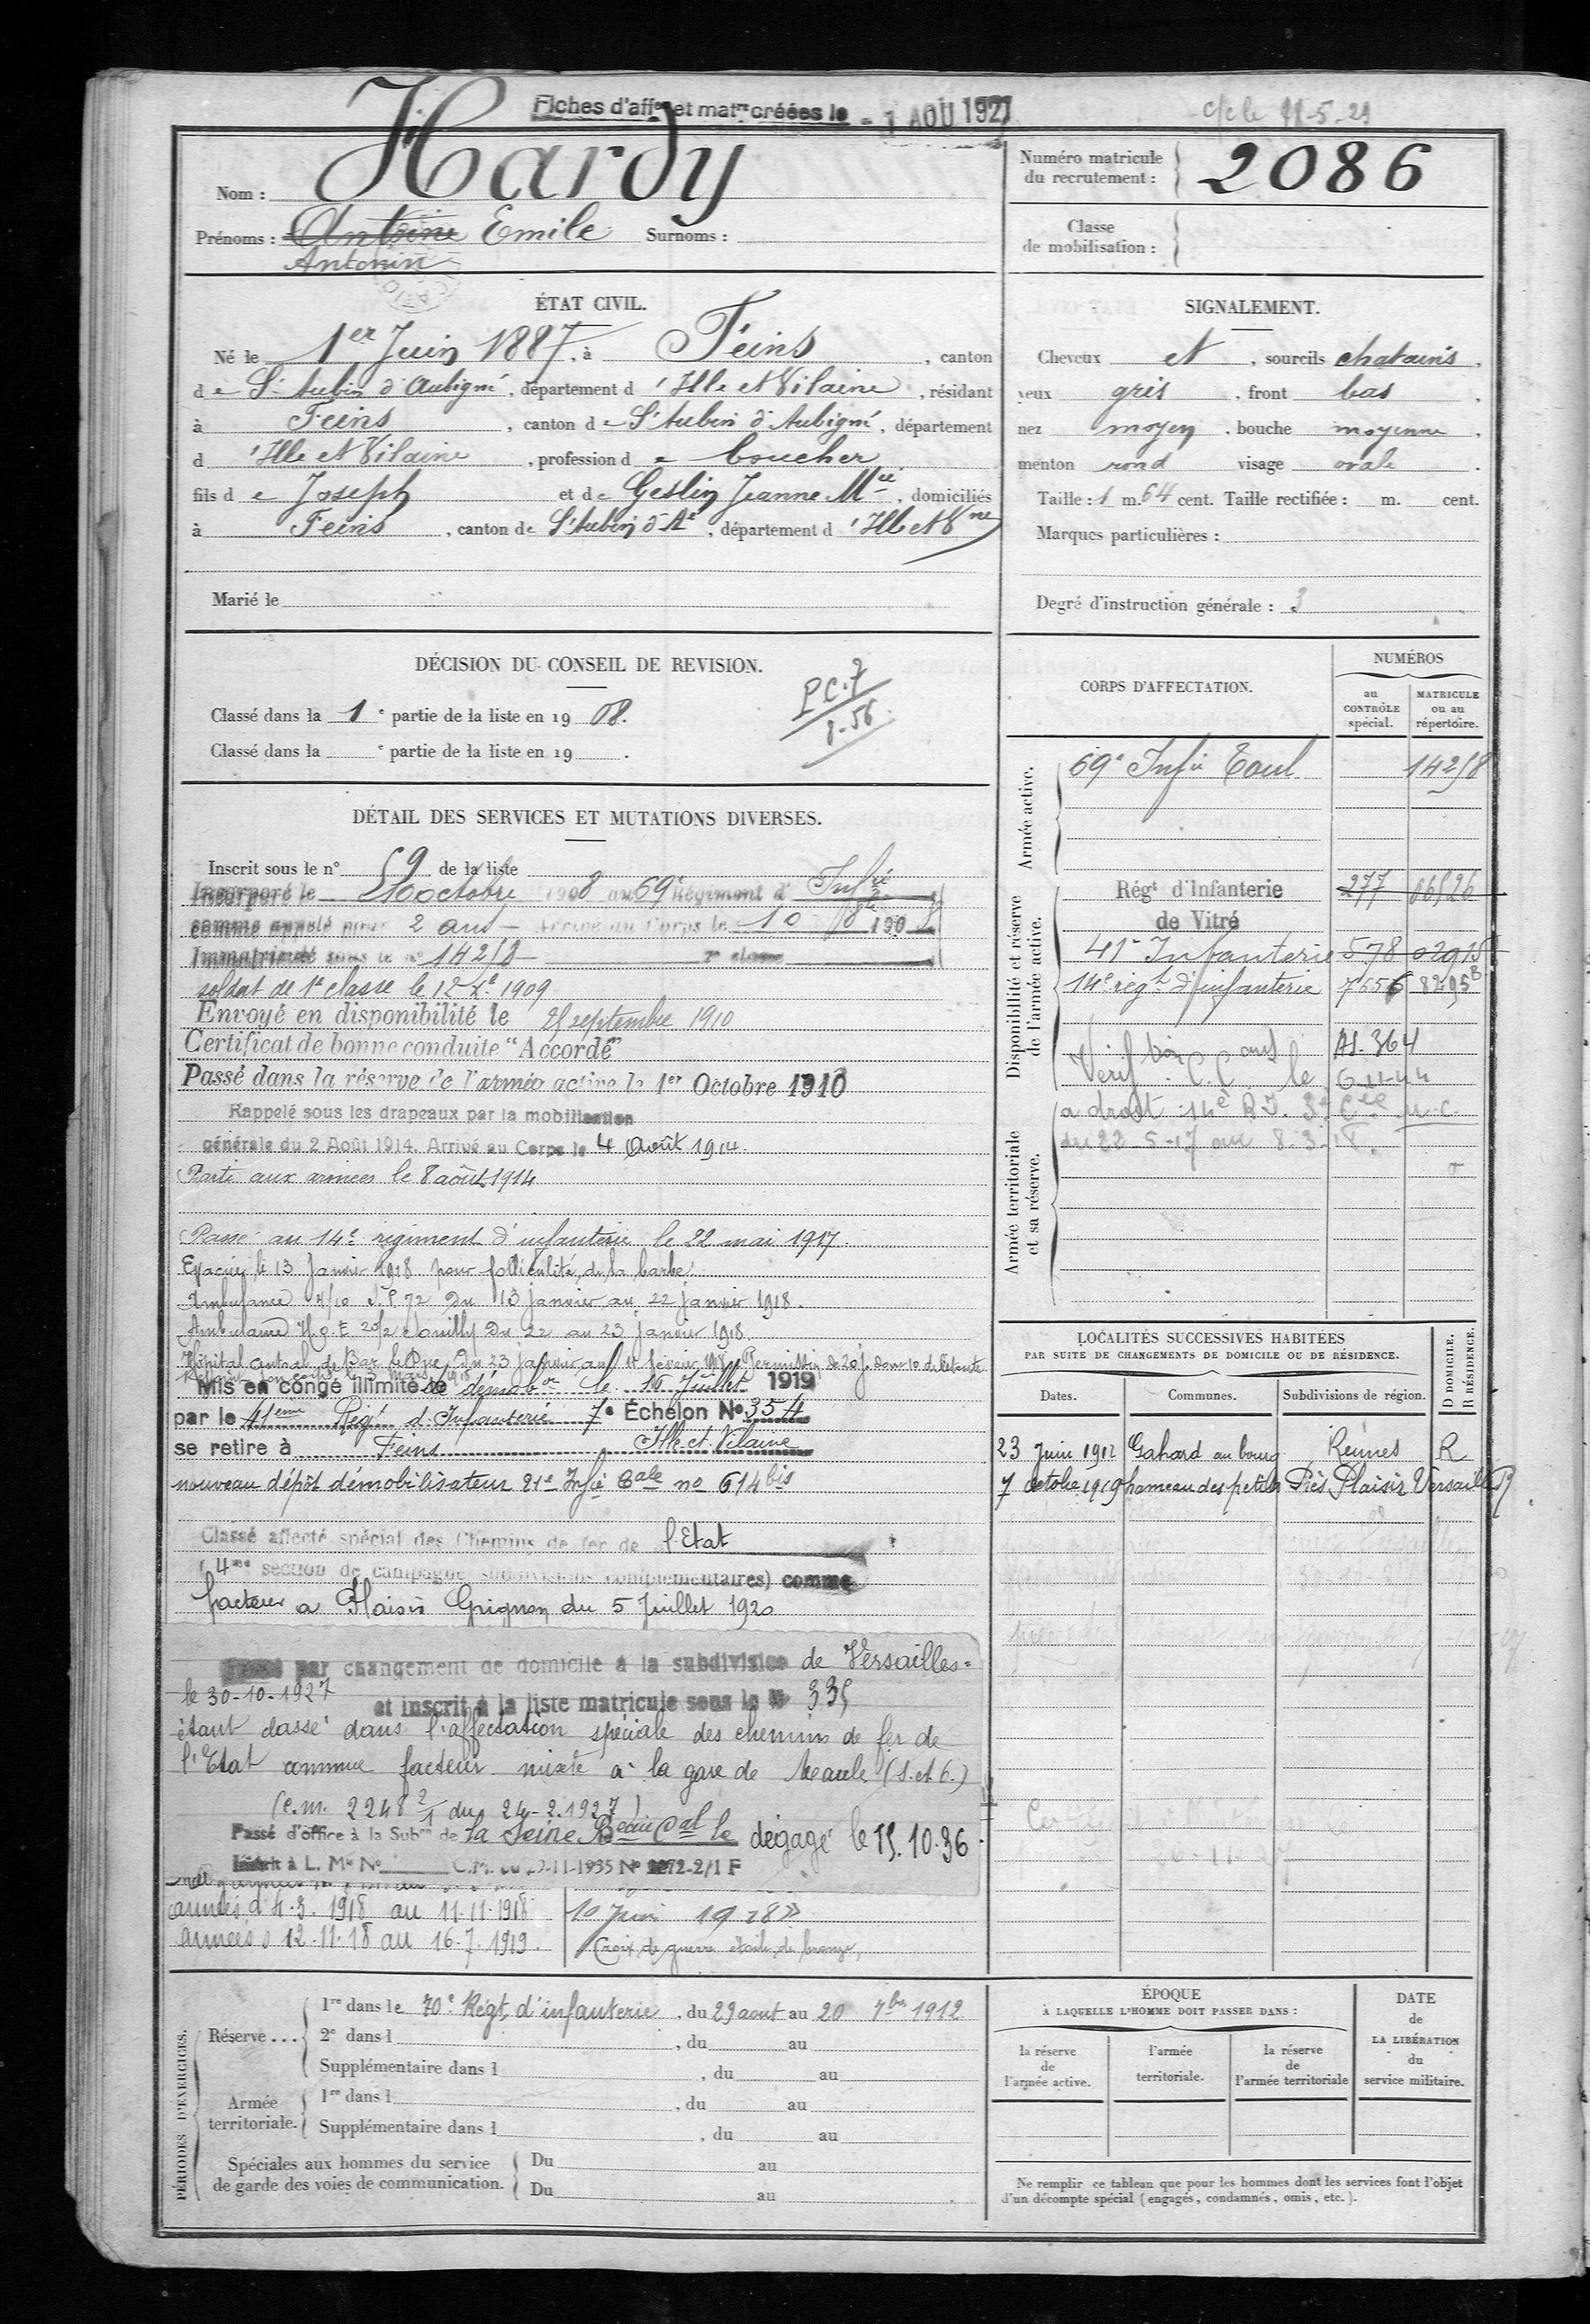 Fiches d'aff^on et mat^re créées le - 1 AOU 1927
c/c le 11-5-21
Nom : Hardy
Prénoms : Antoine Emile Surnoms :
Antonin
Numéro matricule du recrutement : 2086
Classe de mobilisation :
ÉTAT CIVIL.
Né le 1er Juin 1887, à Feins, canton
de St Aubin d'Aubigné, département d'Ille et Vilaine, résidant
à Feins, canton de St Aubin d'Aubigné, département
d'Ille et Vilaine, profession de boucher
fils de Joseph et de Geslin Jeanne Mie, domiciliés
à Feins, canton de St Aubin d'A^é, département d'Ille et V^ne
Marié le
SIGNALEMENT.
Cheveux et, sourcils chatains,
yeux gris, front bas,
nez moyen, bouche moyenne,
menton rond visage ovale.
Taille : 1 m. 64 cent. Taille rectifiée : m. cent.
Marques particulières :
Degré d'instruction générale : 3
DÉCISION DU CONSEIL DE REVISION.
Classé dans la 1e partie de la liste en 1908.
Classé dans la e partie de la liste en 19 .
DÉTAIL DES SERVICES ET MUTATIONS DIVERSES.
Inscrit sous le n° 59 de la liste
Incorporé le octobre 1908 au 69e Régiment d'Inf^ie
comme appelé pour 2 ans Arrivé au Corps le 10 8bre 1908
Immatriculé sous le n° 14258 2e classe
soldat de 1e classe le 12 Xe 1909
Envoyé en disponibilité le 25 septembre 1910
Certificat de bonne conduite "Accordé"
Passé dans la réserve de l'armée active le 1er Octobre 1910
Rappelé sous les drapeaux par la mobilisation
générale du 2 Août 1914. Arrivé au Corps le 4 Août 1914.
Parti aux armées le 8 août 1914
Passé au 14e régiment d'infanterie le 22 mai 1917.
Evacué le 13 Janvier 1918 pour folliculite de la barbe.
Ambulance 4/10 S.P. 72 du 13 janvier au 22 janvier 1918.
Ambulance H.O.E 20/2 du 22 au 23 janvier 1918.
Hôpital central de Bar le Duc du 23 janvier au février 1918 Permission de 20 j. dont 10 de détente
Mis en congé illimité de démob^on le 16 Juillet 1919
par le 41eme Rég^t d'Infanterie 7e Échelon N° 354
se retire à Feins Ille et Vilaine
nouveau dépôt démobilisateur 21e Inf^ie C^ale no 614 bis
Classé affecté spécial des Chemins de fer de l'Etat
(4me section de campagne subdivisions complémentaires) comme
facteur a Plaisir Grignon du 5 Juillet 1920
Passé par changement de domicile à la subdivision de Versailles
le 30-10-1927 et inscrit à la liste matricule sous le N° 335
étant classé dans l'affectation spéciale des chemins de fer de
l'Etat comme facteur mixte à la gare de (S. et O.)
(C.M. 2248 2/1 du 24-2.1927)
Passé d'office à la Sub^on de la Seine B^eau C^al le dégagé le 15.10.36
Inscrit à L. M^le N° C.M. du 29-11-1935 N° 2-2/1 F
armées d 4.3.1918 au 11.11.1918
armées d 12.11.18 au 16.7.1919.
10 Juin 1918"
Croix de guerre étoile de bronze
CORPS D'AFFECTATION.
NUMÉROS
au CONTRÔLE spécial.
MATRICULE ou au répertoire.
Armée active.
69e Inf^ie Toul 14258
Disponibilité et réserve de l'armée active.
Rég^t d'Infanterie de Vitré 277 06526
41e Infanterie 578 02915
14e rég^t d'infanterie 7656 8295 B
AS. 364
le 6-11-44
a droit : 14e R.I. 3e C^ie U.C.
du 22 5-17 au 8.3.18.
Armée territoriale et sa réserve.
LOCALITÉS SUCCESSIVES HABITÉES
PAR SUITE DE CHANGEMENTS DE DOMICILE OU DE RÉSIDENCE.
Dates. Communes. Subdivisions de région. D DOMICILE. R RÉSIDENCE.
23 Juin 1912 Gahard au bourg Rennes R
7 octobre 1919 hameau des petits Prés Plaisir Versailles R
PÉRIODES D'EXERCICES.
Réserve... 1re dans le 70e Régt d'infanterie, du 29 aout au 20 7bre 1912
2e dans l , du au
Supplémentaire dans l , du au
Armée territoriale. 1re dans l , du au
Supplémentaire dans l , du au
Spéciales aux hommes du service de garde des voies de communication. Du au
Du au
ÉPOQUE
À LAQUELLE L'HOMME DOIT PASSER DANS :
la réserve de l'armée active.
l'armée territoriale.
la réserve de l'armée territoriale
DATE de LA LIBÉRATION du service militaire.
Ne remplir ce tableau que pour les hommes dont les services font l'objet
d'un décompte spécial (engagés, condamnés, omis, etc.).